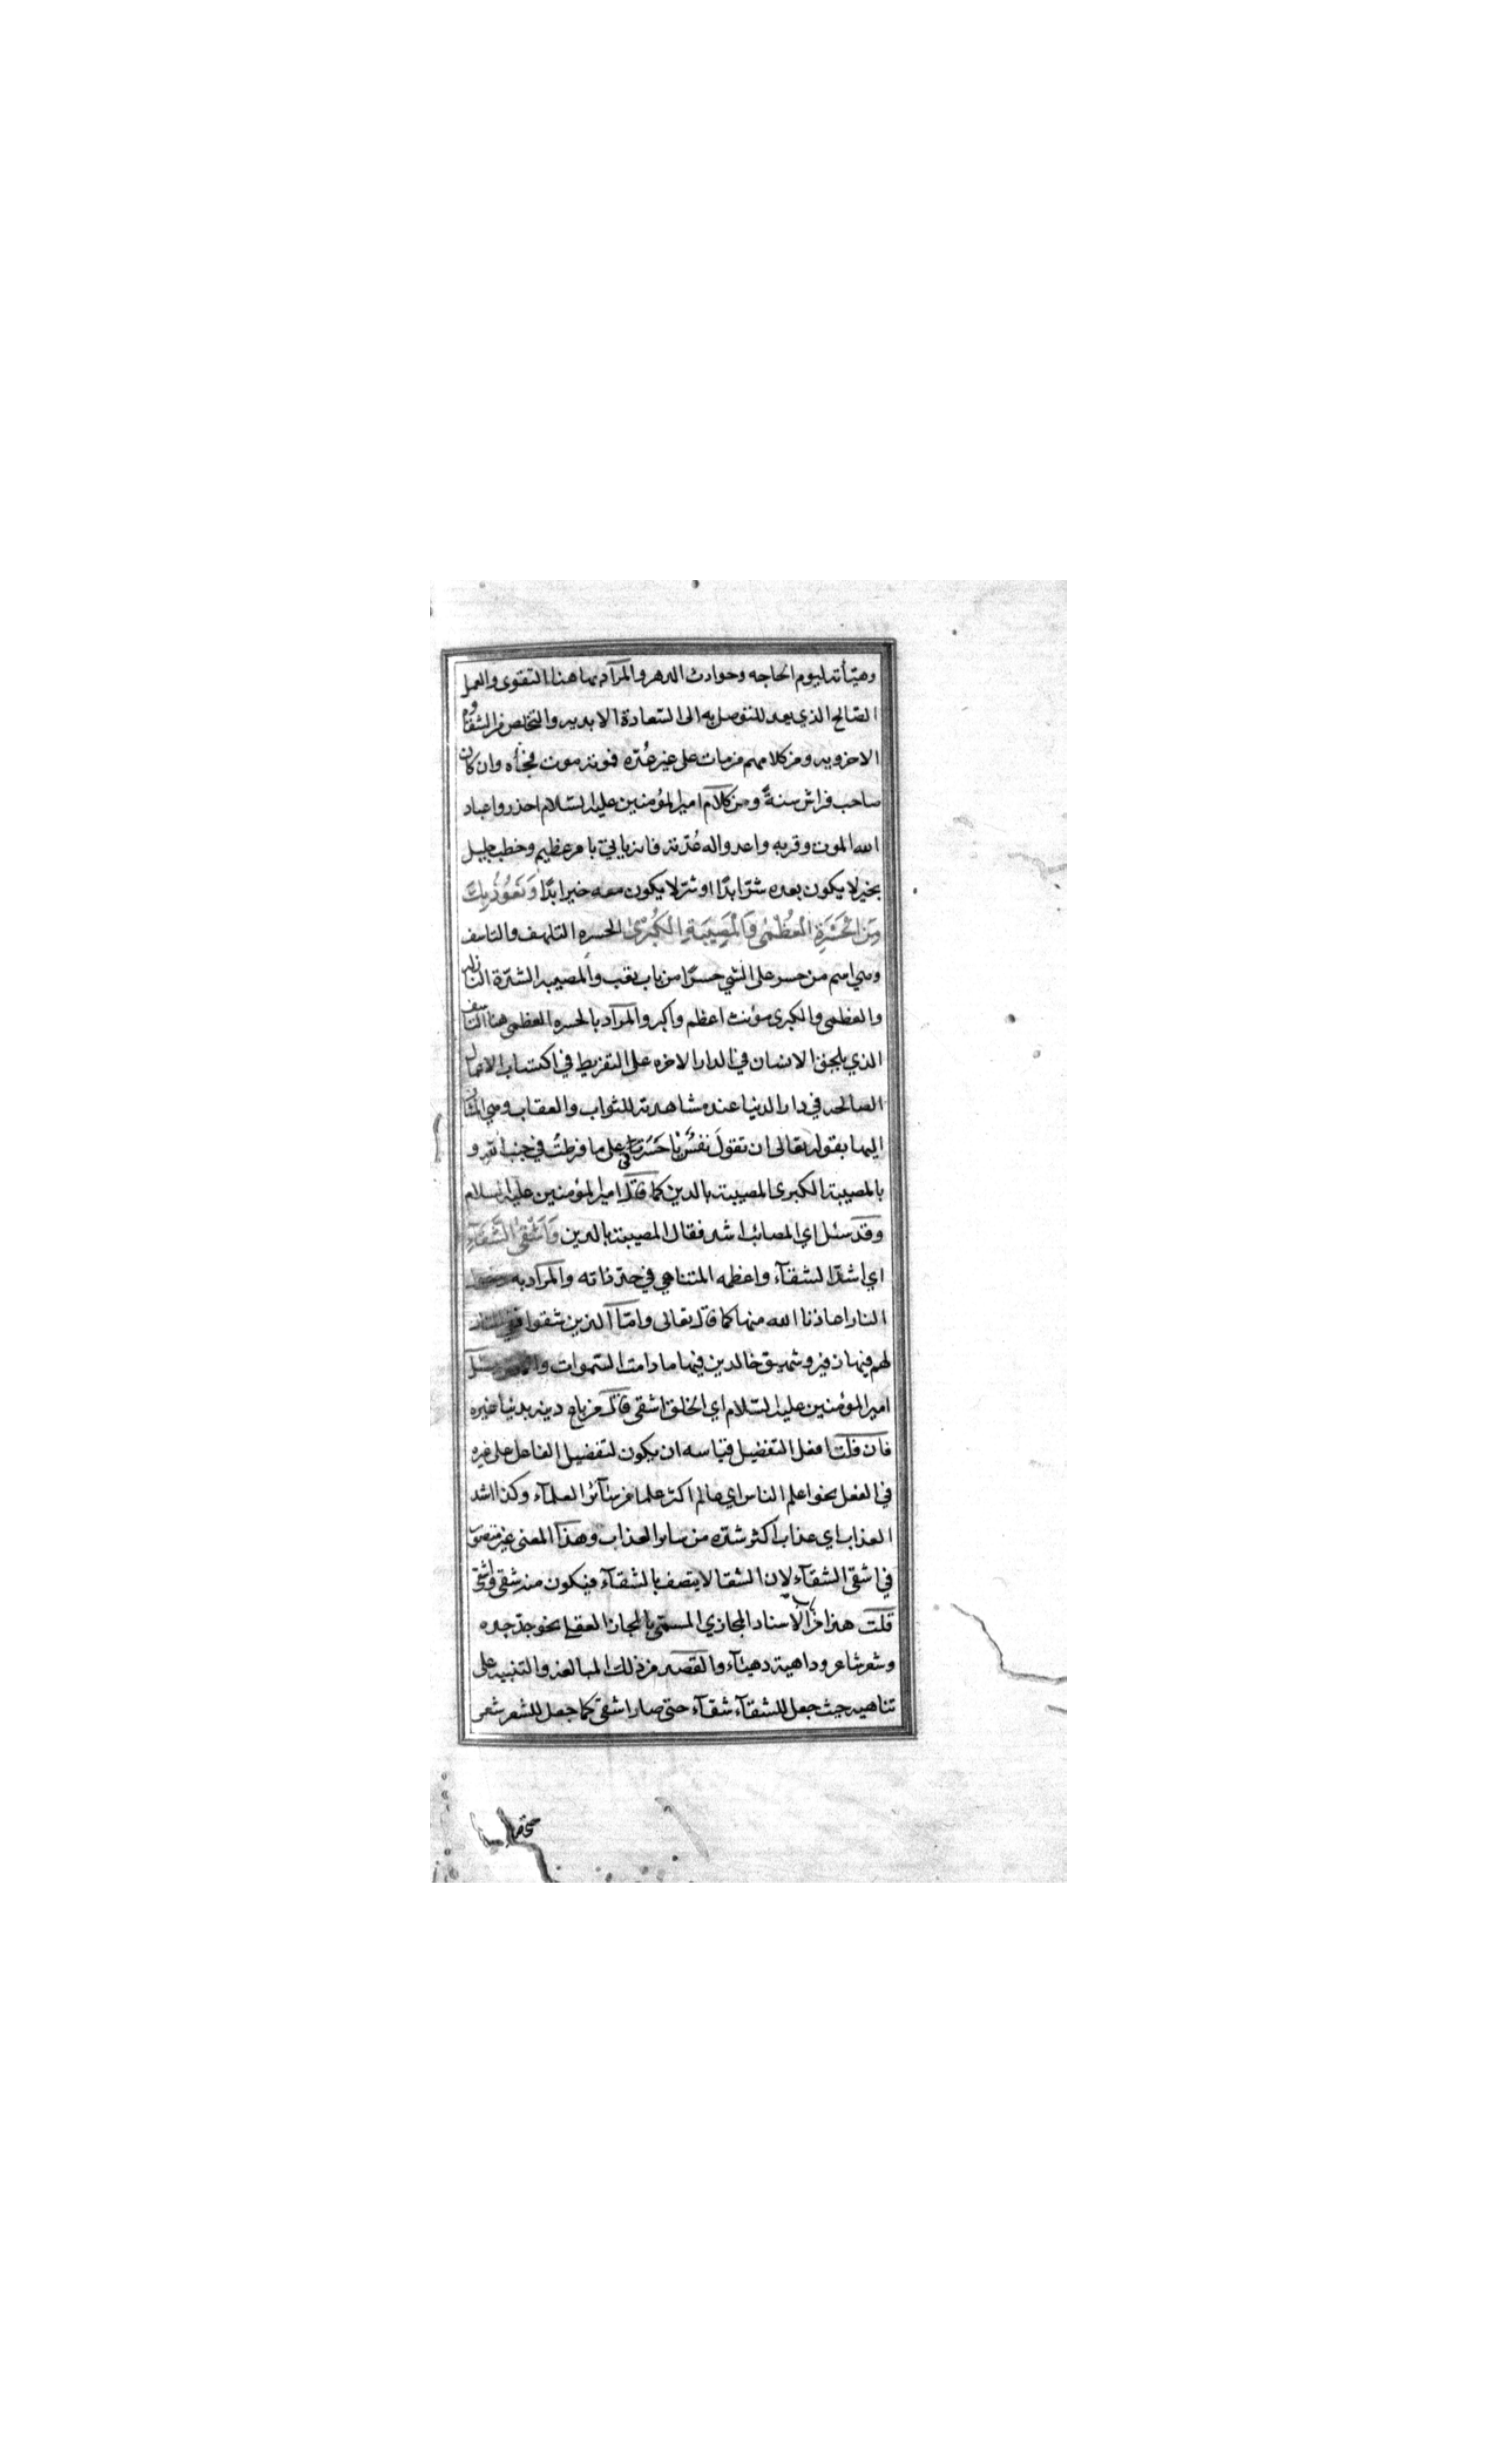 وهيأته ليوم الحاجه وحوادث الدهر والمرآد بها هنا التقوى والعمل
الصّالح الذي يعد للتوصل به الى السّعادة الابديه والتخلص من الشقآوه
الاخرويه ومن كلامهم من مات على غير عُدّه فموته موت فجأه وان كان
صاحب فراش سنةً ومن كلآم امير المؤمنين عليه السّلام احذروا عباد
الله الموت وقربه واعدوا له عُدّته فانه ياتي بامر عظيم وخطب جليل
بخير لا يكون بعده شرّ ابدًا او شرّ لا يكون معه خير ابدًا وَنَعُوذُ بِكَ
مِنَ الْحَسْرَةِ الْعُظْمٰى وَالْمُصِيبَةِ الْكُبْرٰى الحسره التلهف والتاسف
وهي اسم من حسر على الشي حسرًا من باب تعب والمصيبه الشدّة النازله
والعظمى والكبرى مؤنث اعظم وأكبر والمرآد بالحسره العظمى هنا التاسف
الذي يلحق الانسان في الدار الاخره على التفريط في اكتساب الاعمال
الصالحه في دار الدنيا عند مشاهدته للثواب والعقاب وهي المشار
اليها بقوله تعالى ان تقولَ نفسٌ يا حَسَرتى على ما فرطتُ في جنب الله و
بالمصيبة الكبرى المصيبة بالدين كما قآل امير المؤمنين عليه السلام
وقد سئل اي المصائب اشد فقال المصيبة بالدين وَأَشْقَى الشَّقَآءِ
اي اشدّ الشقآء واعظمه المتناهي في حدّ ذاته والمرآد به دخول
النار اعاذنا الله منها كما قآل تعالى وامّا الذين شقوا ففي النار
لهم فيها زفير وشهيق خالدين فيها ما دامت السّموات والارض وسئل
امير المؤمنين عليه السّلام اي الخلق اشقى قآل من باع دينه بدنيا غيره
فان قلت افعل التفضيل قياسه ان يكون لتفضيل الفاعل على غيره
في الفعل نحو اعلم الناس اي عالم اكثر علما من سآئر العلمآء وكذا اشد
العذاب اي عذاب اكثر شدّه من سائر العذاب وهذا المعنى غير متصور
في اشقى الشقآء لان الشقا لا يتصف بالشقآء فيكون منه شقى واشقى
قلت هذا من باب الاسناد المجازي المسمّى بالمجاز العقلي نحو جدّ جده
وشعر شاعر وداهية دهيآء والقصد من ذلك المبالغة والتنبيه على
تناهيه حيث جعل للشقآء شقآء حتى صار اشقى كما جعل للشعر شعر